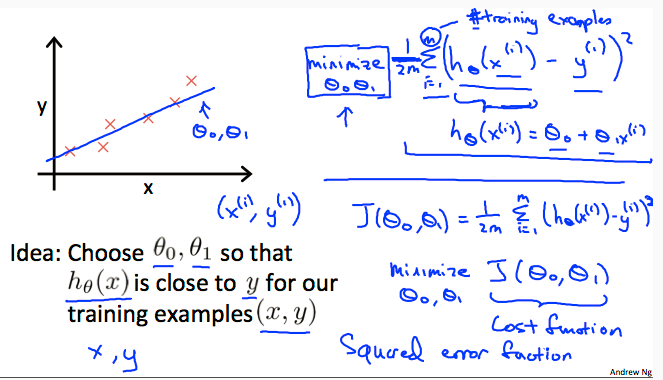 y
x
θ₀, θ₁
(x⁽ⁱ⁾, y⁽ⁱ⁾)
Idea: Choose θ₀, θ₁ so that
hθ(x) is close to y for our
training examples (x, y)
x, y
#training examples
minimize
θ₀ θ₁
1/2m ∑ᵢ₌₁ᵐ (hθ(x⁽ⁱ⁾) - y⁽ⁱ⁾)²
hθ(x⁽ⁱ⁾) = θ₀ + θ₁x⁽ⁱ⁾
J(θ₀, θ₁) = 1/2m ∑ᵢ₌₁ᵐ (hθ(x⁽ⁱ⁾) - y⁽ⁱ⁾)²
minimize J(θ₀, θ₁)
θ₀, θ₁
Cost function
Squared error faction
Andrew Ng